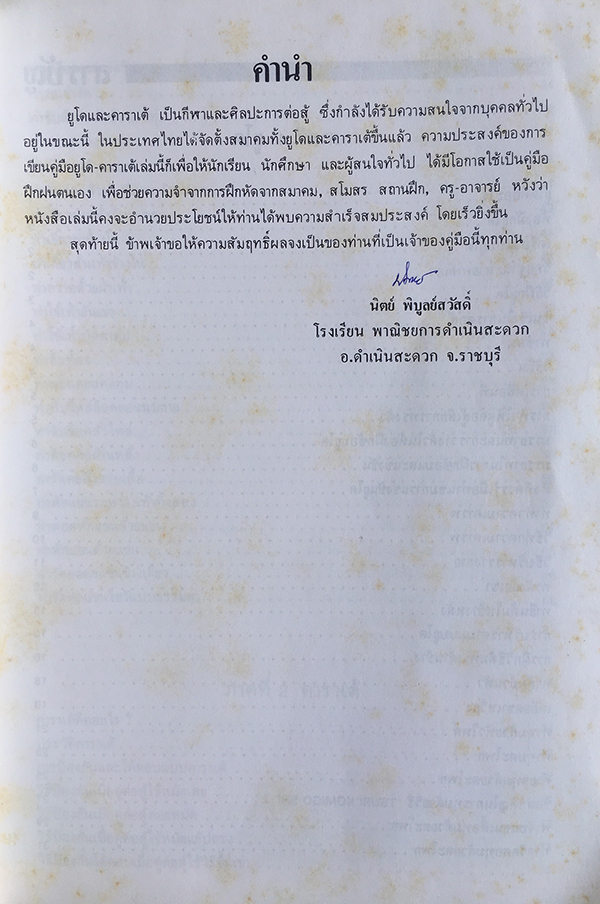 คำนำ
ยูโดและคาราเต้ เป็นกีฬาและศิลปะการต่อสู้ ซึ่งกำลังได้รับความสนใจจากบุคคลทั่วไป
อยู่ในขณะนี้ ในประเทศไทยได้จัดตั้งสมาคมทั้งยูโดและคาราเต้ขึ้นแล้ว ความประสงค์ของการ
เขียนคู่มือยูโด-คาราเต้เล่มนี้ก็เพื่อให้นักเรียน นักศึกษา และผู้สนใจทั่วไป ได้มีโอกาสใช้เป็นคู่มือ
ฝึกฝนตนเอง เพื่อช่วยความจำจากการฝึกหัดจากสมาคม, สโมสร สถานฝึก, ครู-อาจารย์ หวังว่า
หนังสือเล่มนี้คงจะอำนวยประโยชน์ให้ท่านได้พบความสำเร็จสมประสงค์ โดยเร็วยิ่งขึ้น
สุดท้ายนี้ ข้าพเจ้าขอให้ความสัมฤทธิ์ผลจงเป็นของท่านที่เป็นเจ้าของคู่มือนี้ทุกท่าน
นิตย์ พิบูลย์สวัสดิ์
โรงเรียน พาณิชยการดำเนินสะดวก
อ.ดำเนินสะดวก จ.ราชบุรี